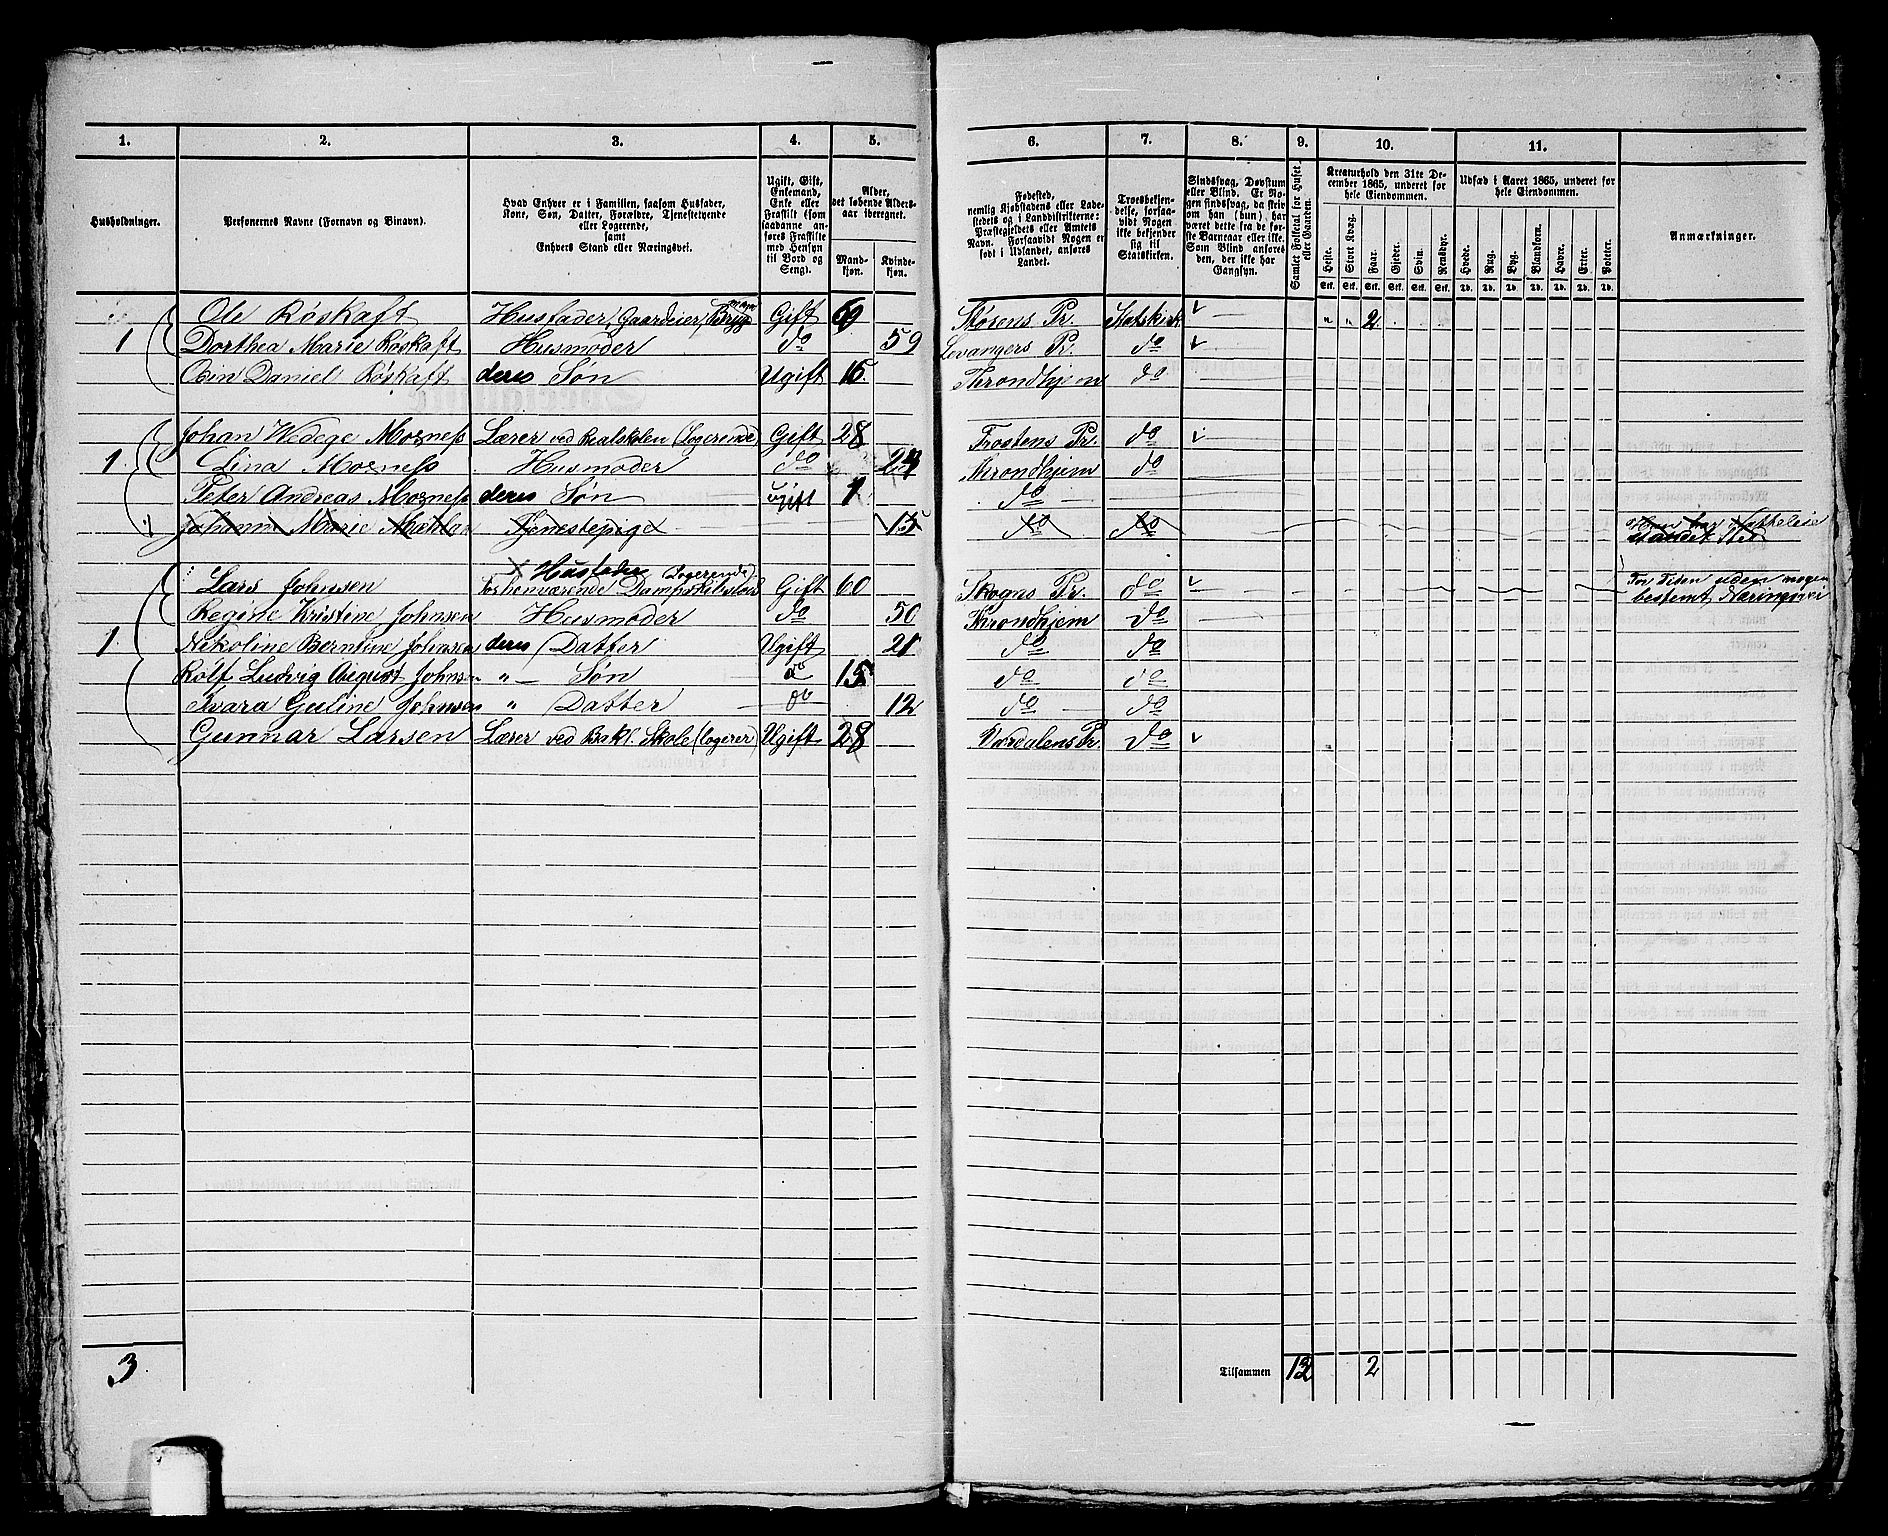 1. 2. 3. 4. 5. 6. 7. 8. 9. 10. 11.
Husholdninger.
Personernes Navne (Fornavn og Binavn).
Hvad Enhver er i Familien, saasom Husfader,
Kone, Søn, Datter, Forældre, Tjenestetyende
eller Logerende,
samt
Enhvers Stand eller Næringsvei.
Ugift, Gift,
Enkemand,
Enke eller
Fraskilt (som
saadanne an-
føres Fraskilte
med Hensyn
til Bord og
Seng).
Alder,
det løbende Alders-
aar iberegnet.
Mand-
kjøn.
Kvinde-
kjøn.
Fødested,
nemlig Kjøbstadens eller Lade-
stedets og i Landdistrikterne:
Præstegjeldets eller Amtets
Navn. Forsaavidt Nogen er
født i Udlandet, anføres
Landet.
Troesbekjen-
delse, forsaa-
vidt Nogen
ikke bekjender
sig til
Statskirken.
Sindssvag, Døvstum
eller Blind. Er No-
gen sindssvag, da skriv
om han (hun) har
været dette fra de før-
ste Barneaar eller ikke.
Som Blind anføres
den, der ikke har
Gangsyn.
Samlet Folketal for Huset
eller Gaarden.
Kreaturhold den 31te De-
cember 1865, underet for
hele Eiendommen.
Heste. Stort Kvæg. Faar. Gjeder. Svin. Rensdyr.
Stk. Stk. Stk. Stk. Stk. Stk.
Udsæd i Aaret 1865, underet for
hele Eiendommen.
Hvede. Rug. Byg. Blandkorn. Havre. Erter. Poteter.
Td. Td. Td. Td. Td. Td. Td.
Anmærkninger.
Ole Røskaft Husfader, Gaardeier, Gift 69 Størens Pr. Statskirk " " 2
1 Dorthea Marie Røskaft Husmoder do 59 Levangers Pr. do
Daniel Røskaft deres Søn Ugift 15 Throndhjem do
Johan Wedege Mosness Lærer ved Realskolen (Logerende) Gift 28 Frostens Pr. do
1 Lina Mosness Husmoder do Throndhjem do
Peter Andreas Mosness deres Søn Ugift 1 do
Johanna Marie Tjenestepige 15 do do
Husfader Logerende
Lars Johnsen Gift 60 Skogns Pr. do For Tiden uden nogen
bestemt Næringsvei
Regine Kristine Johnsen Husmoder do 50 Throndhjem do
1 Nikoline Berntine Johnsen deres Datter Ugift 21 do do
Rolf Ludvig August Johnsen " Søn do 15 do do
Guline Johnsen " Datter do 12 do do
Gunnar Larsen Lærer ved Bakl. Skole (logerer) Ugift 28 Værdalens Pr. do
3 Tilsammen 12 2